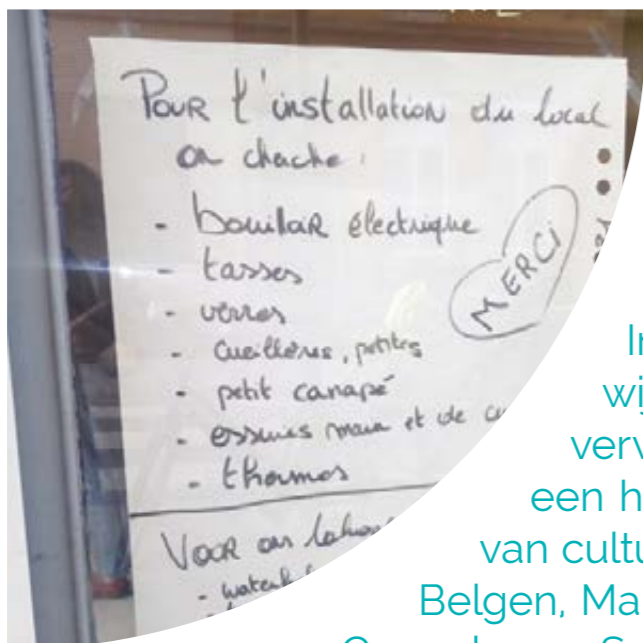 Pour l'installation du local
on cherche :
- bouilloir électrique
- tasses
- verres
- cueillères, petites
- petit canapé
- essuies main et de
- thermos
MERCI
Voor ons
een h
van cultu
Belgen, Ma